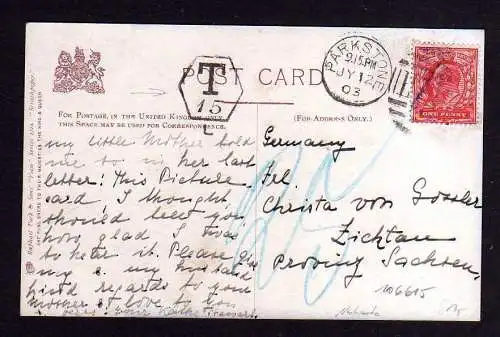 POST CARD
T
15
C
PARKSTONE
9.15 PM
JY 12
03
ONE PENNY
FOR POSTAGE, IN THE UNITED KINGDOM ONLY,
THIS SPACE MAY BE USED FOR CORRESPONDENCE.
(FOR ADDRESS ONLY.)
my little Mother told
me to in her last
letter! This Picture
card. I thought,
should tell you
how glad I was
to hear it. Please give
my & my husband
kind regards to your
Mother & love to you
Germany
Frl.
Christa von Gossler
Zichtau
Provinz Sachsen.
106615
25